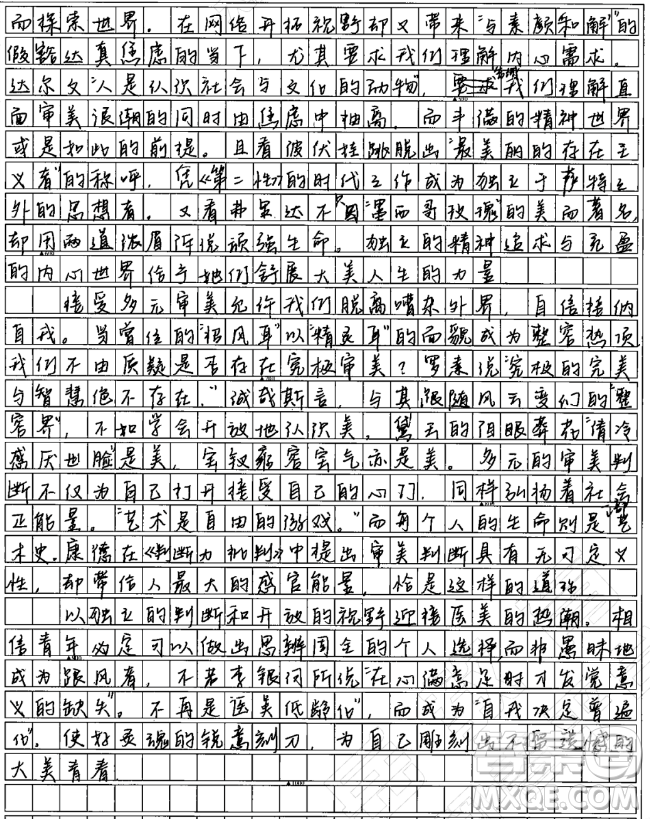 而探索世界。在网络开拓视野却又带来“与素颜和解”的
假豁达真焦虑的当下，尤其要求我们理解内心需求。
达尔文“人是认识社会与文化的动物”，我们理解直
面审美浪潮的同时由焦虑中抽离。而丰满的精神世界
或是如此的前提。且看波伏娃跳脱出“最美丽的存在主
义者”的称呼，凭《第二性》的时代之作成为独立于特立
外的思想者。又看弗里达不因“墨西哥玫瑰”的美而著名，
却用两道浓眉诉说顽强生命。独立的精神追求与充盈
的内心世界给予她们舒展大美人生的力量
接受多元审美允许我们脱离嘈杂外界，自信接纳
自我。当曾经的“招风耳”以“精灵耳”的面貌成为整容热项
我们不由质疑是否存在究极审美？罗素说“究极的完美
与智慧绝不存在。”诚哉斯言，与其跟随风云变幻的“整
容界”，不如学会开放地认识美，黛玉的阳眼奔若“清冷
感厌世脸”是美，宝钗雍容宝气亦是美。多元的审美判
断不仅为自己打开接受自己的心门，同样弘扬着社会
正能量。“艺术是自由的游戏。”而每个人的生命则是艺
术史。康德在《判断力批判》中提出审美判断具有无可定义
性，却带给人最大的感官能量，恰是这样的道理
以独立的判断和开放的视野迎接医美的热潮。相
信青年必定可以做出思辨周全的个人选择，而非愚昧地
成为跟风者，不若李银河所说“在心满意足时才发觉意
义的缺失”。不再是“医美低龄化”，而成为“自我决定普遍
化”。使好灵魂的锐意刻刀，为自己雕刻出不留遗憾的
大美青春
答案圈
MXQE.COM